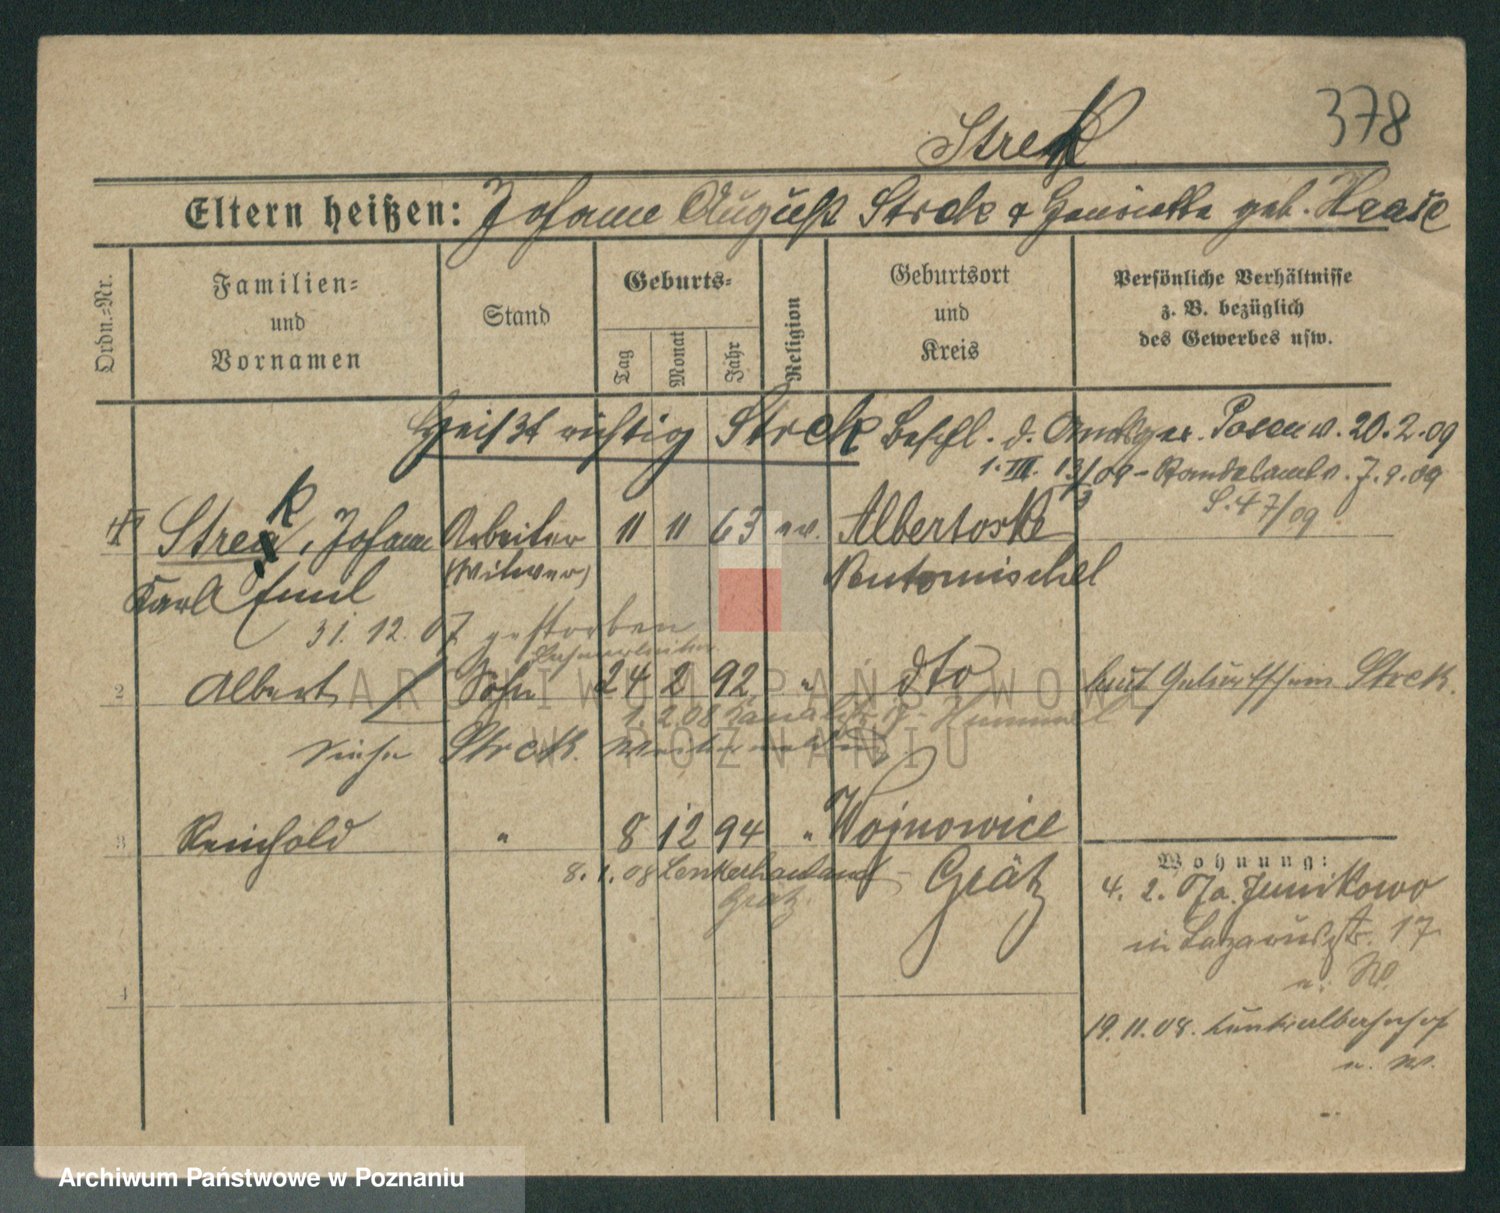 378
Streck
Eltern heißen: Johann August Streck & Henriette geb. Haase
Ordn.-Nr.
Familien-
und
Vornamen
Stand
Geburts-
Tag
Monat
Jahr
Religion
Geburtsort
und
Kreis
Persönliche Verhältnisse
z. B. bezüglich
des Gewerbes usw.
Heißt richtig Streck Beschl. d. Amtsger. Posen v. 20.2.09
1. III. 13/09 - Standesamt v. 7.9.09
47/09
Streck, Johann Arbeiter 11 11 63 ev. Albertoske
Karl Emil (Witwer) Neutomischel
31. 12. 07 gestorben
2 Albert Sohn 24 2 92 " dto laut Geburtsschein Streck.
1. 2. 08
siehe Streck.
3 Reinhold " 8 12 94 " Wojnowice
8. 1. 08 Grätz
Grätz
Wohnung:
4. 2. 07 a. Junikowo
in Lazarusstr. 17
n. W.
4
19. 11. 08. Zentralbahnhof
n. W.
ARCHIWUM PAŃSTWOWE
W POZNANIU
Archiwum Państwowe w Poznaniu